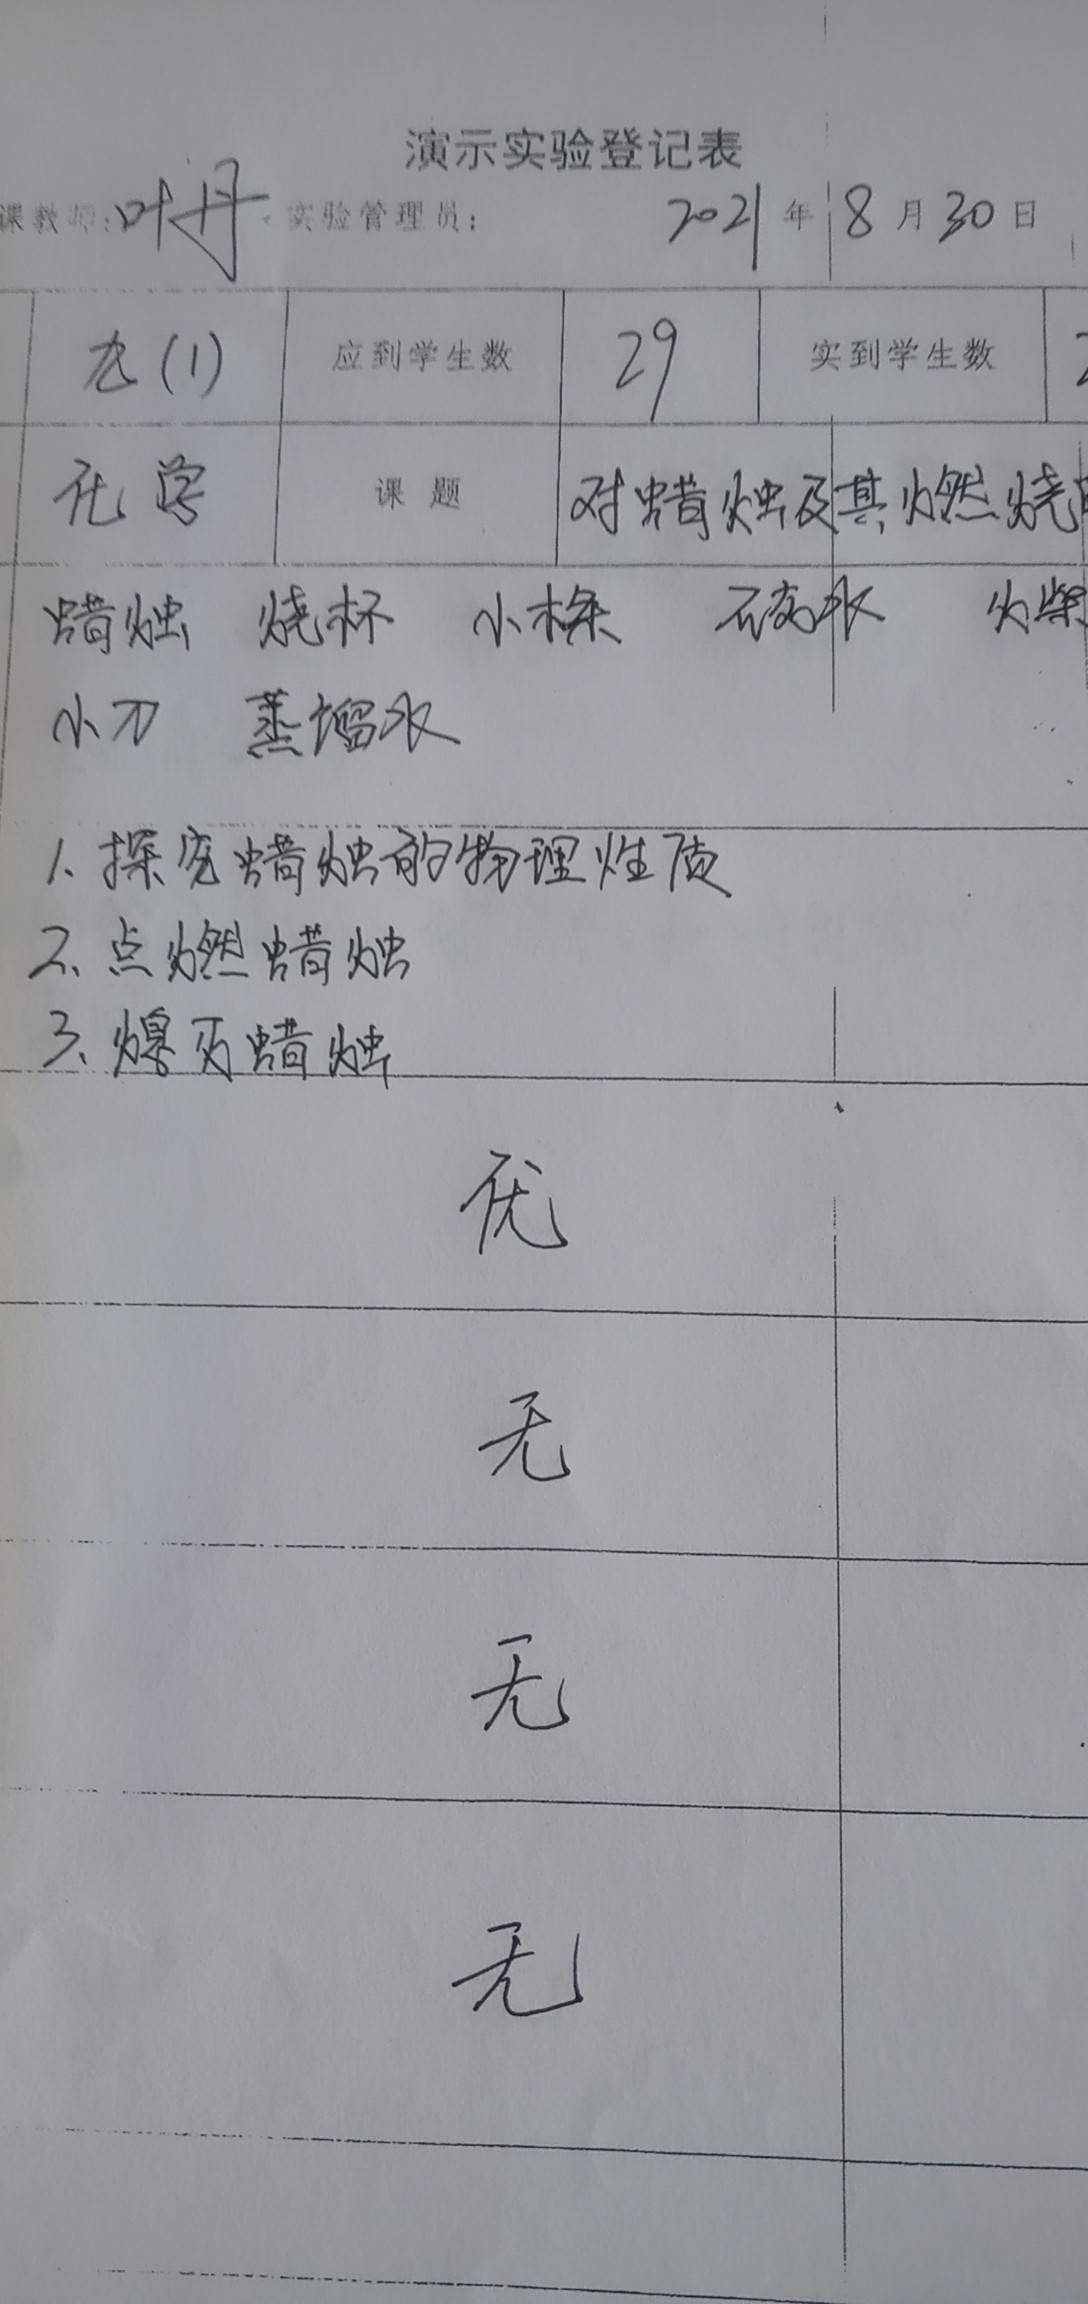 演示实验登记表
课教师:叶丹 实验管理员: 2021年8月30日
九(1) 应到学生数 29 实到学生数
化学 课题 对蜡烛及其燃烧
蜡烛 烧杯 小木条 石灰水 火柴
小刀 蒸馏水
1、探究蜡烛的物理性质
2、点燃蜡烛
3、熄灭蜡烛
优
无
无
无